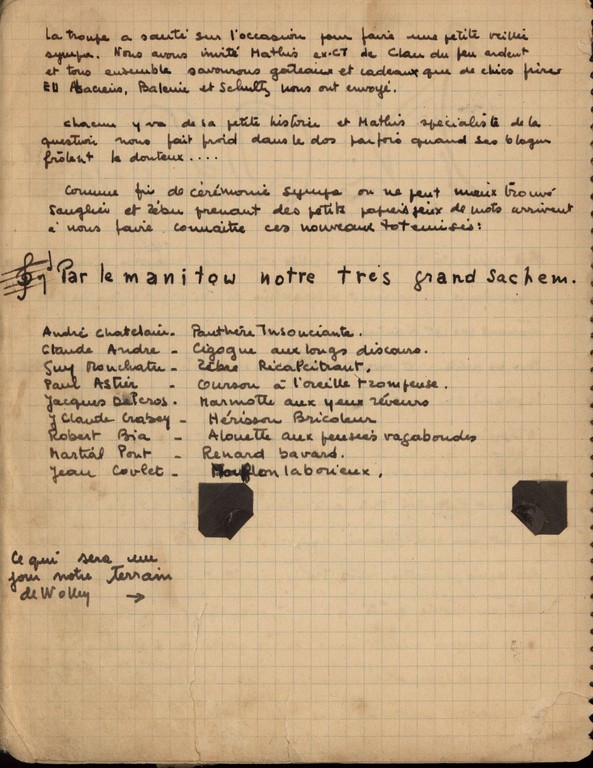 La troupe a sauté sur l'occasion pour faire une petite veillée
sympa. Nous avons invité Mathis ex.CT de Clan du feu ardent
et tous ensemble savourons gateaux et cadeaux que de chics frères
EU Alsaciens, Balenie et Schultz nous ont envoyé.
Chacun y va de sa petite histoire et Mathis spécialiste de la
question nous fait froid dans le dos parfois quand ses blagues
frôlent le douteux....
Comme fin de cérémonie sympa on ne peut mieux trouvé
Sanglier et Zébu prenant des petits papiers jeux de mots arrivent
à nous faire connaitre ces nouveaux totemisés:
Par le manitow notre très grand sachem.
André Chatelain - Panthère Insouciante.
Claude Andre - Cigogne aux longs discours.
Guy - Zèbre Ricalcitrant.
Paul Astier - Ourson à l'oreille trompeuse.
Jacques Delcros - Marmotte aux yeux rêveurs
J Claude Crabey - Hérisson Bricoleur
Robert Bia - Alouette aux pensées vagabondes
Martial Pont - Renard bavard.
Jean Coulet - Mouflon laborieux.
Ce qui sera un
jour notre terrain
de Wolley →